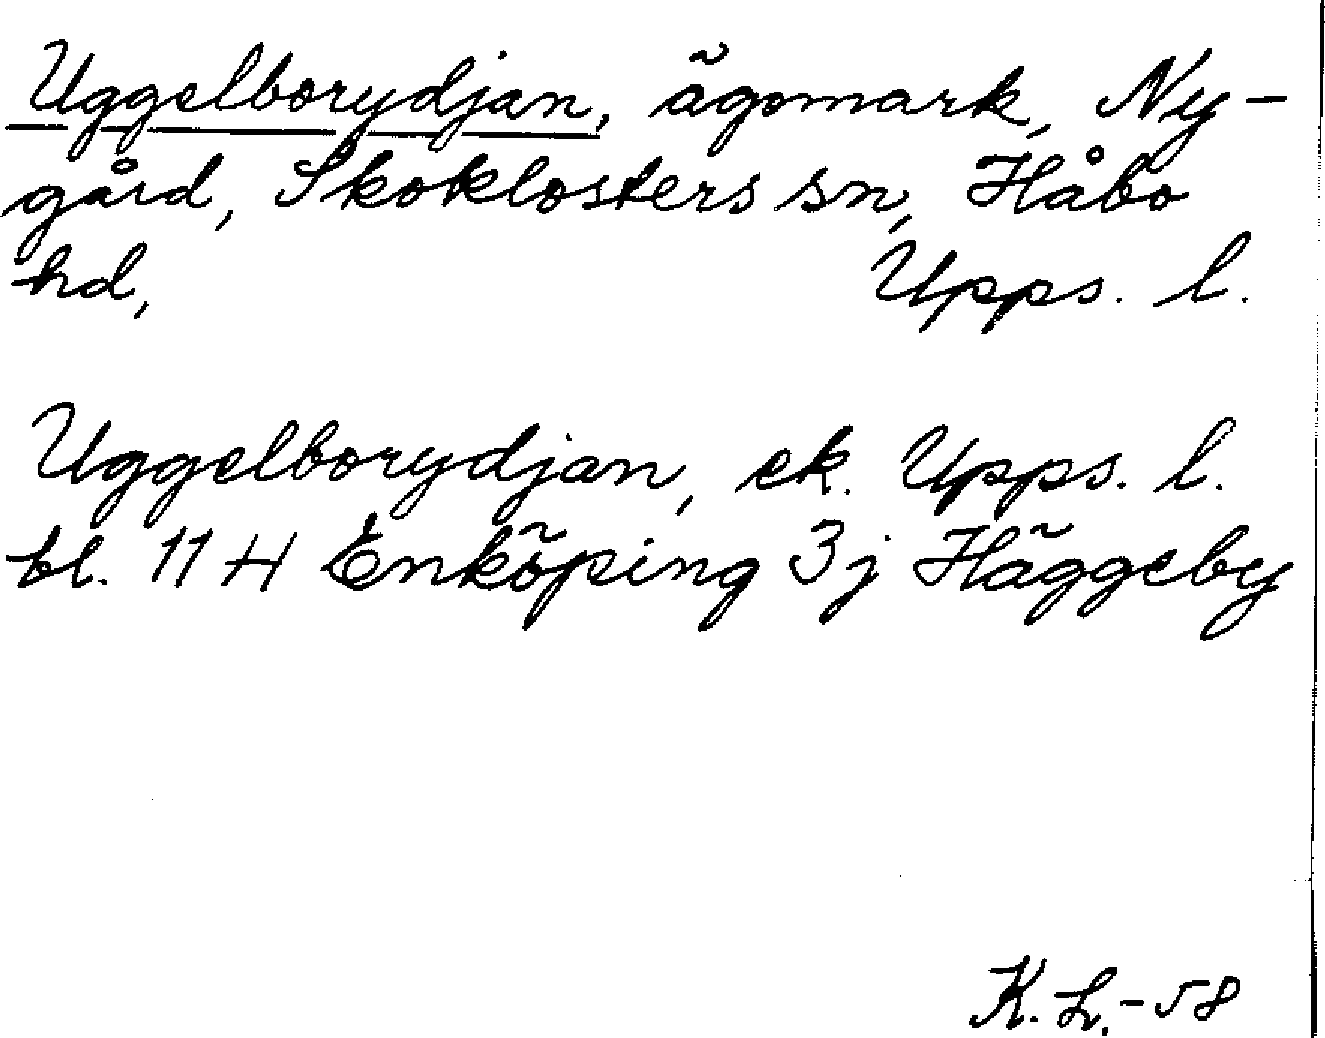 Uggelborydjan, ägomark, Ny-
gård, Skoklosters sn, Håbo
hd, Upps. l.
Uggelborydjan, ek. Upps. l.
bl. 11 H Enköping 3j Häggeby
K. L. - 58